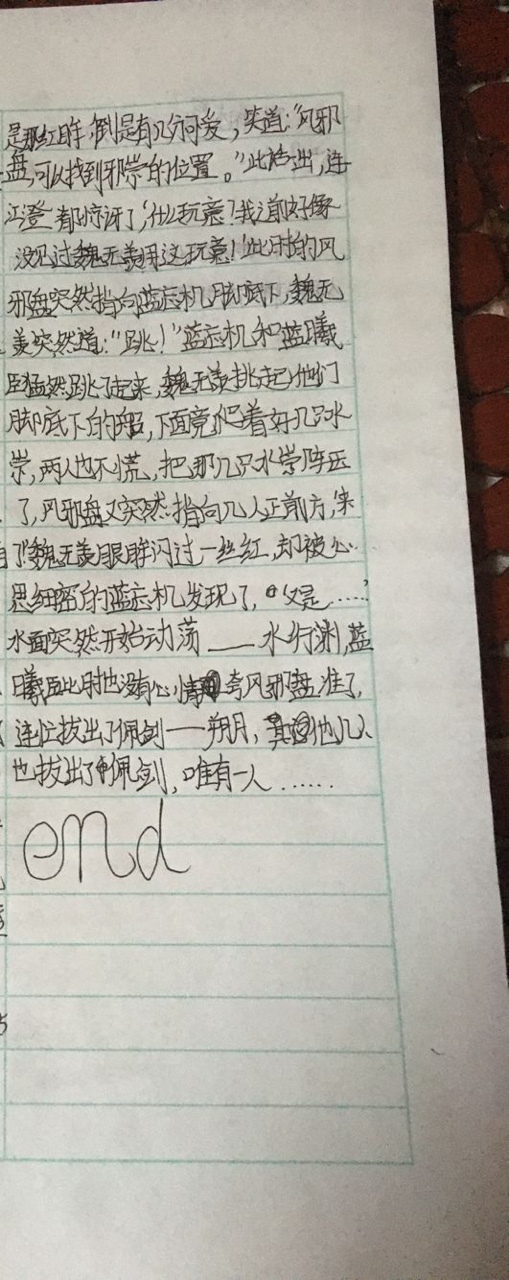 是那红眸,倒是有几分可爱,笑道:“风邪
盘,可以找到邪祟的位置。”此话出,连
江澄都惊讶了,什么玩意?我之前好像
没见过魏无羡用这玩意!此时的风
邪盘突然指向蓝忘机脚底下,魏无
羡突然道:“跳!”蓝忘机和蓝曦
臣猛然跳了起来,魏无羡挑起他们
脚底下的船,下面竟爬着好几只水
祟,两人也不慌,把那几只水祟阵压
了,风邪盘又突然指向几人正前方,“来
了”魏无羡眼眸闪过一丝红,却被心
思细密的蓝忘机发现了,“又是……”
水面突然开始动荡——水行渊,蓝
曦臣此时也没有心情夸风邪盘准了,
连忙拔出了佩剑——朔月,其他几人
也拔出了佩剑,唯有一人……
end